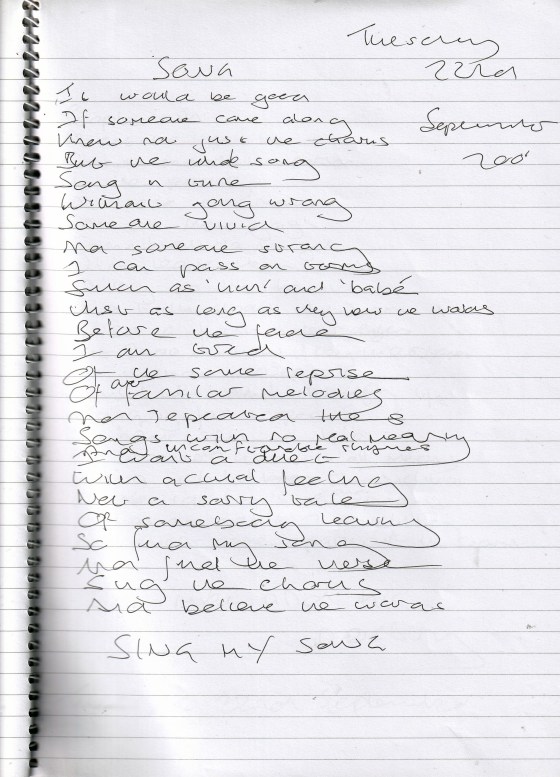 Tuesday
SONG
22nd
It would be good
If someone came along
September
Knew not just the chorus
But the whole song
Song in tune
Without going wrong
Someone vivid
And someone strong
I can pass on terms
Such as 'hun' and 'babé
Just as long as they know the words
Before the fade
I am tired
Of the same reprise
Of familiar melodies
And repeated
Songs with no real meaning
And uncomfortable rhymes
I want a duet
With actual feeling
Not a sorry tale
Of somebody leaving
So find my song
And find the verse
Sing the chorus
And believe the words
SING MY SONG